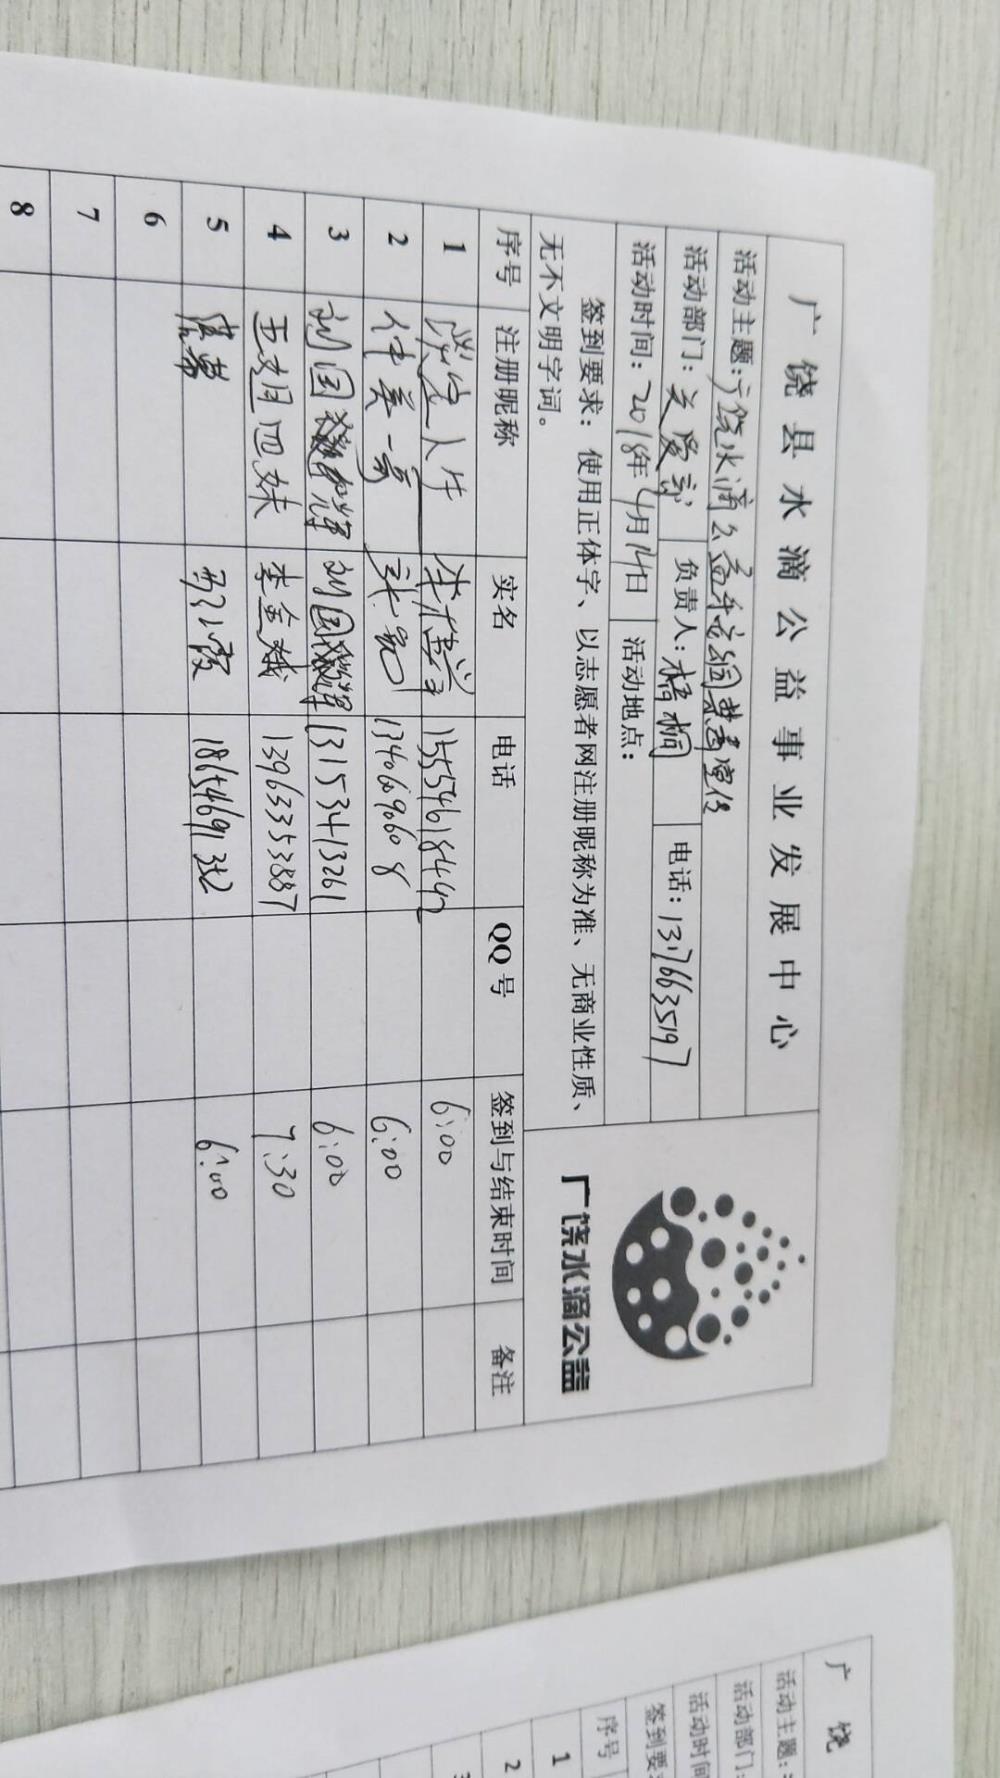 广饶县水滴公益事业发展中心
活动主题：广饶水滴公益
活动部门：关爱部 负责人：梧桐 电话：13176635197
活动时间：2018年4月14日 活动地点：
签到要求：使用正体字、以志愿者网注册昵称为准、无商业性质、
无不文明字词。
广饶水滴公益
序号 注册昵称 实名 电话 QQ号 签到与结束时间 备注
1 人生 15554618442 6:00
2 13406690608 6:00
3 刘国辉 刘国辉 13153413261 6:00
4 五姐四妹 李金娥 13963353887 7:30
5 18654691332 6:00
6
7
8
广饶
活动主题：
活动部门：
活动时间
签到要
序号
1
2